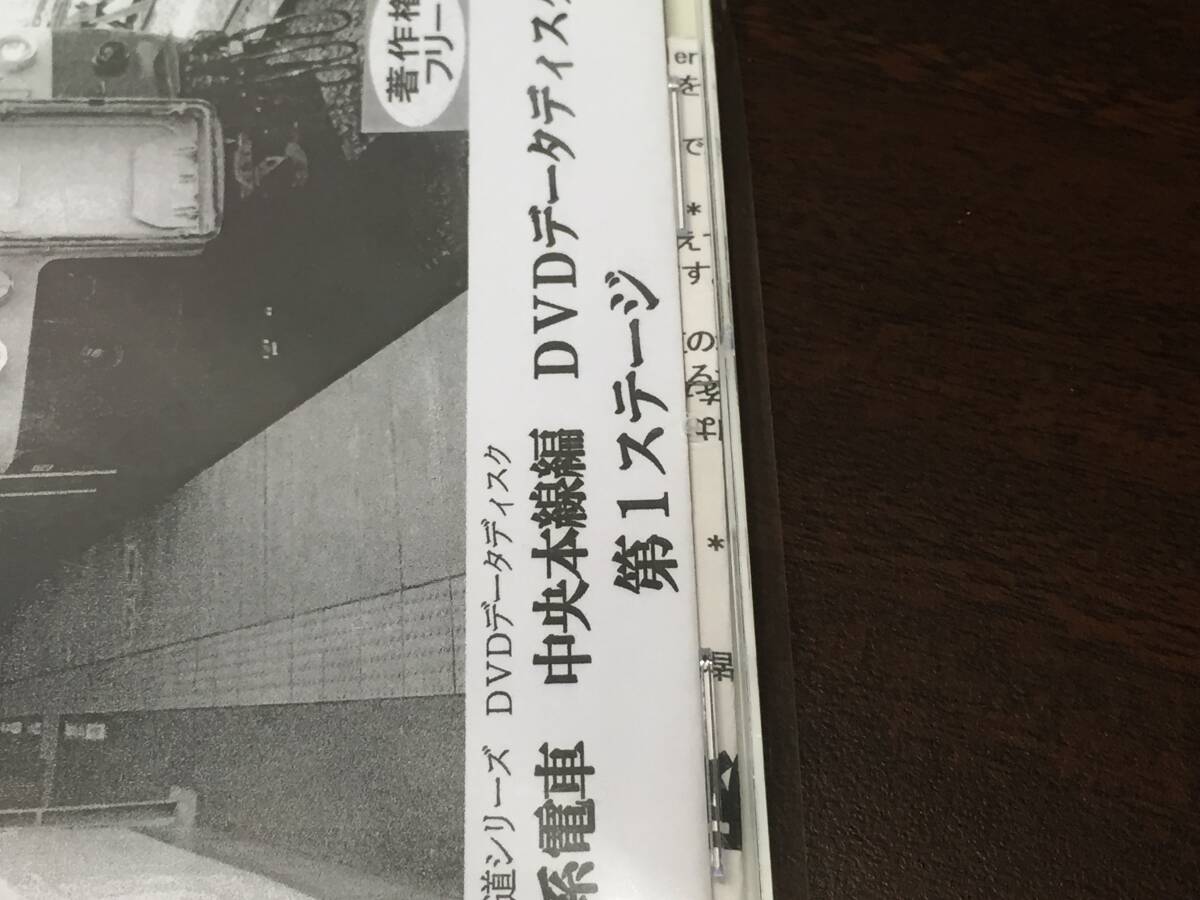 著作権
フリー
道シリーズ DVDデータディスク
系電車 中央本線編 DVDデータディスク
第1ステージ
er
を
で
*
え
す
の
は
*